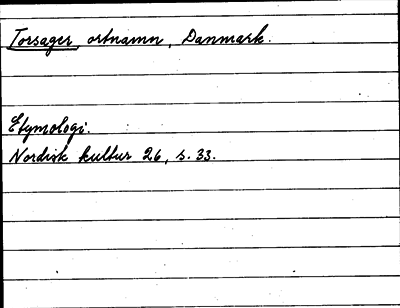 Torsager, ortnamn, Danmark.
Etymologi.
Nordisk kultur 26, s. 33.